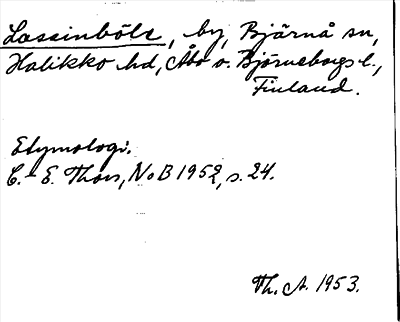 Lassinböle, by, Bjärnå sn,
Halikko hd, Åbo o. Björneborgs l.,
Finland.
Etymologi.
C.-E. Thors, NoB 1952, s. 24.
Th. A. 1953.